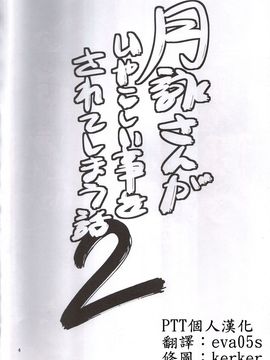 月詠さんが
いやらしい事を
されてしまう話
2
PTT個人漢化
翻譯：eva05s
修圖：kerker
4